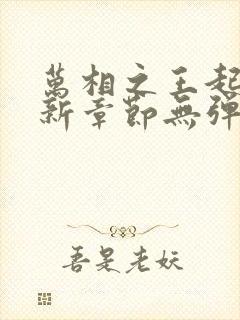 萬相之王起
新章節無彈
吾是老妖